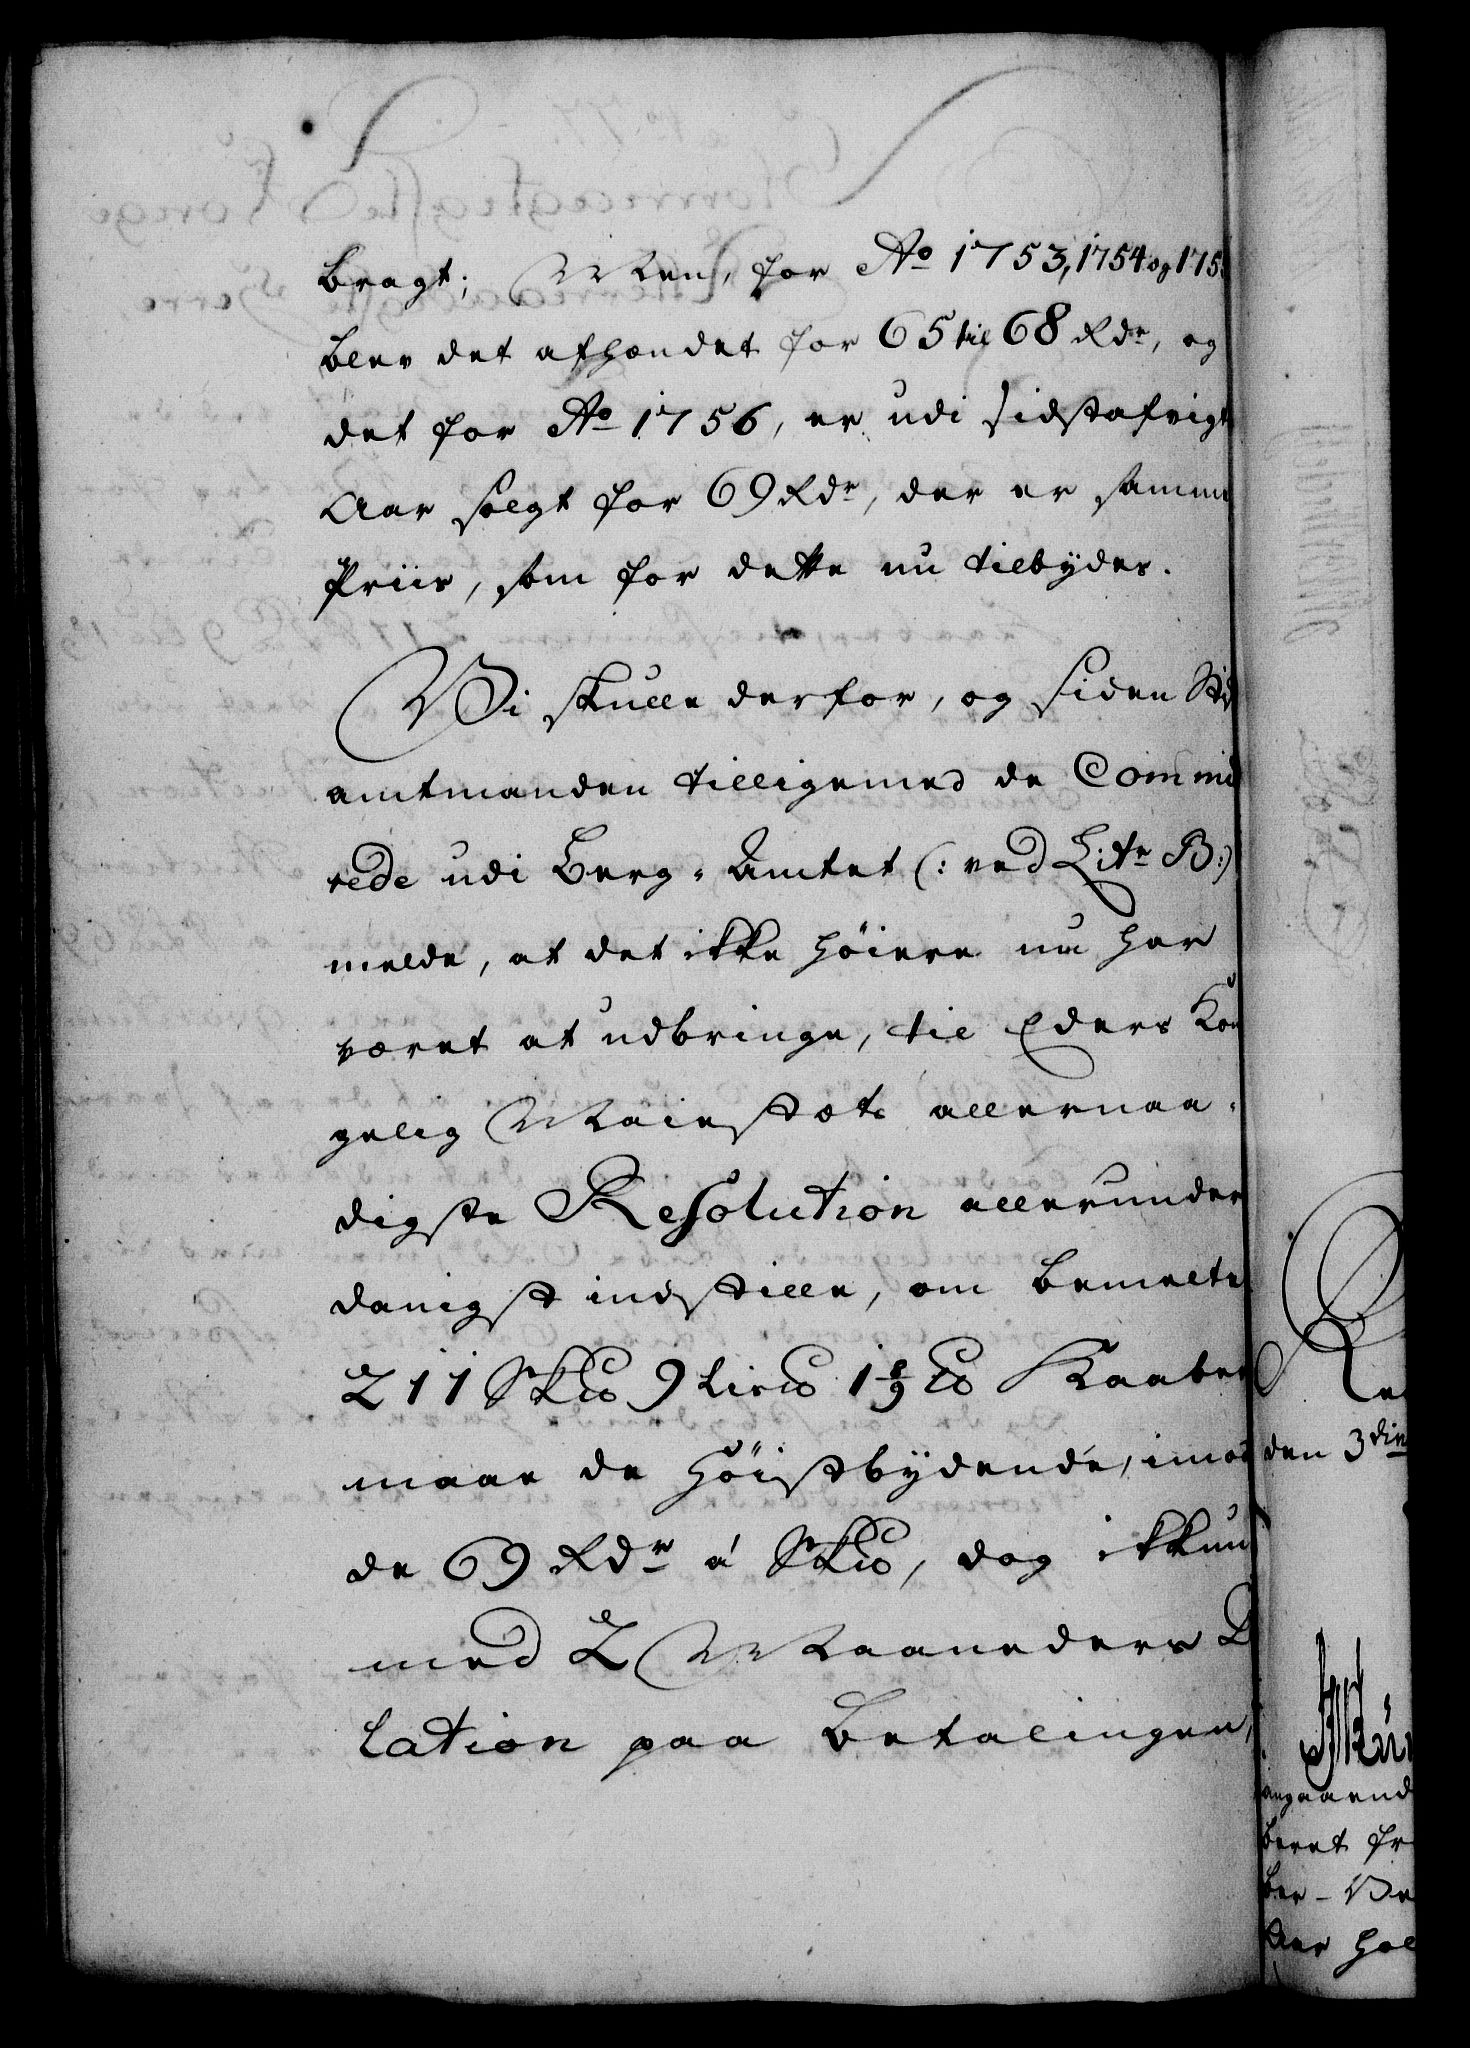 bragt; Men, for Ao 1753, 1754 og 175
blev det afhændet for 65 til 68 Rdr, og
det for Ao 1756, er udi sidstafvigt
Aar solgt for 69 Rdr, der er samme
Priis, som for dette nu tilbydes.
Vi skulle derfor, og siden Sti
amtmanden tilligemed de Commit
rede udi Berg-Amtet (: ved Litr B:)
melde, at det ikke høiere nu har
været at udbringe, til Eders Kon
gelig Maiestæts allernaa-
digste Resolution allerunder
danigst indstille, om bemelte
211 Sk℔ 9 Lis℔ 1 8/9 ℔ Kaaber
maae de høistbydende, imod
de 69 Rdr á Sk℔, dog ikkun
med 2 Maaneders D
lation paa Betalingen,
den 3die
angaaend
beret fr
ber-Ve
Aar hol